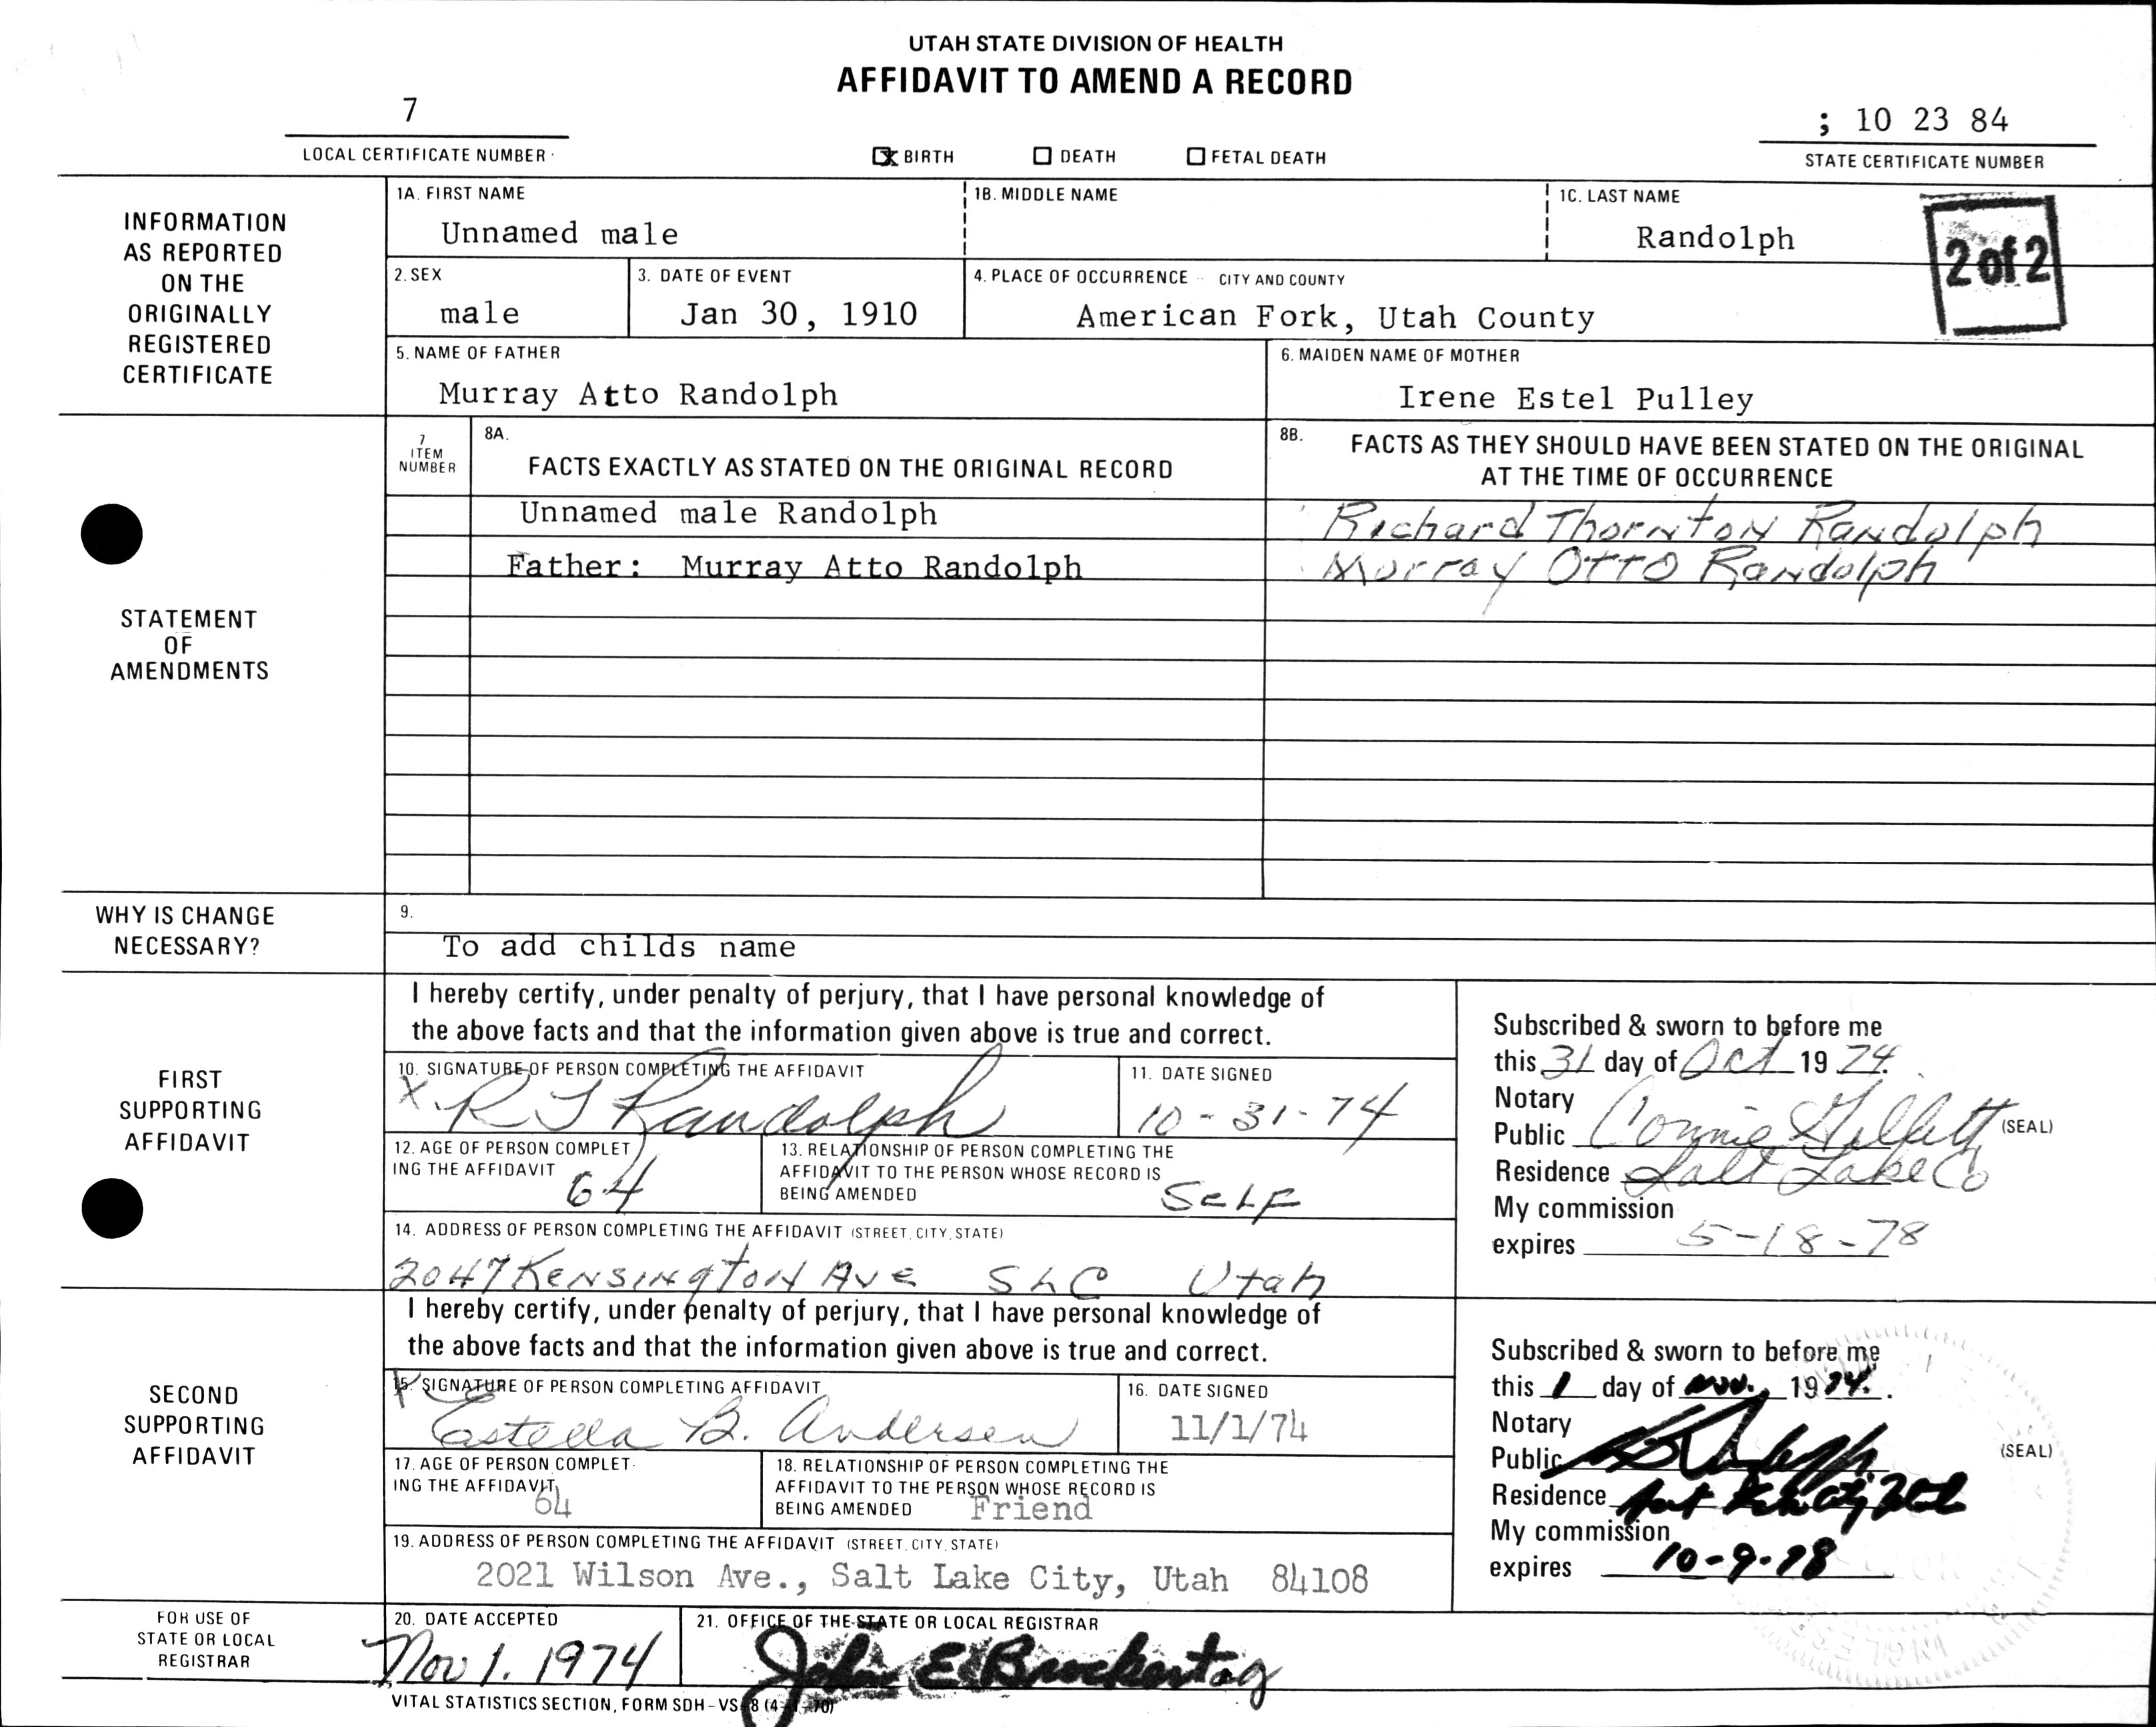 UTAH STATE DIVISION OF HEALTH
AFFIDAVIT TO AMEND A RECORD
7
; 10 23 84
LOCAL CERTIFICATE NUMBER
BIRTH DEATH FETAL DEATH
STATE CERTIFICATE NUMBER
INFORMATION
AS REPORTED
ON THE
ORIGINALLY
REGISTERED
CERTIFICATE
1A. FIRST NAME
Unnamed male
1B. MIDDLE NAME
1C. LAST NAME
Randolph
2 of 2
2. SEX
male
3. DATE OF EVENT
Jan 30, 1910
4. PLACE OF OCCURRENCE - CITY AND COUNTY
American Fork, Utah County
5. NAME OF FATHER
Murray Atto Randolph
6. MAIDEN NAME OF MOTHER
Irene Estel Pulley
STATEMENT
OF
AMENDMENTS
7
ITEM
NUMBER
8A.
FACTS EXACTLY AS STATED ON THE ORIGINAL RECORD
8B.
FACTS AS THEY SHOULD HAVE BEEN STATED ON THE ORIGINAL
AT THE TIME OF OCCURRENCE
Unnamed male Randolph
Richard Thornton Randolph
Father: Murray Atto Randolph
Murray Otto Randolph
WHY IS CHANGE
NECESSARY?
9.
To add childs name
FIRST
SUPPORTING
AFFIDAVIT
I hereby certify, under penalty of perjury, that I have personal knowledge of
the above facts and that the information given above is true and correct.
10. SIGNATURE OF PERSON COMPLETING THE AFFIDAVIT
X R T Randolph
11. DATE SIGNED
10-31-74
12. AGE OF PERSON COMPLET
ING THE AFFIDAVIT
64
13. RELATIONSHIP OF PERSON COMPLETING THE
AFFIDAVIT TO THE PERSON WHOSE RECORD IS
BEING AMENDED
SELF
14. ADDRESS OF PERSON COMPLETING THE AFFIDAVIT (STREET, CITY, STATE)
2047 Kensington Ave SLC Utah
Subscribed & sworn to before me
this 31 day of Oct 1974.
Notary
Public Connie Gillett (SEAL)
Residence Salt Lake Co
My commission
expires 5-18-78
SECOND
SUPPORTING
AFFIDAVIT
I hereby certify, under penalty of perjury, that I have personal knowledge of
the above facts and that the information given above is true and correct.
15. SIGNATURE OF PERSON COMPLETING AFFIDAVIT
Estella B. Andersen
16. DATE SIGNED
11/1/74
17. AGE OF PERSON COMPLET-
ING THE AFFIDAVIT
64
18. RELATIONSHIP OF PERSON COMPLETING THE
AFFIDAVIT TO THE PERSON WHOSE RECORD IS
BEING AMENDED
Friend
19. ADDRESS OF PERSON COMPLETING THE AFFIDAVIT (STREET, CITY, STATE)
2021 Wilson Ave., Salt Lake City, Utah 84108
Subscribed & sworn to before me
this 1 day of Nov. 1974.
Notary
Public (SEAL)
Residence
My commission
expires 10-9-78
FOR USE OF
STATE OR LOCAL
REGISTRAR
20. DATE ACCEPTED
Nov 1. 1974
21. OFFICE OF THE STATE OR LOCAL REGISTRAR
John E Brockert
VITAL STATISTICS SECTION, FORM SDH-VS